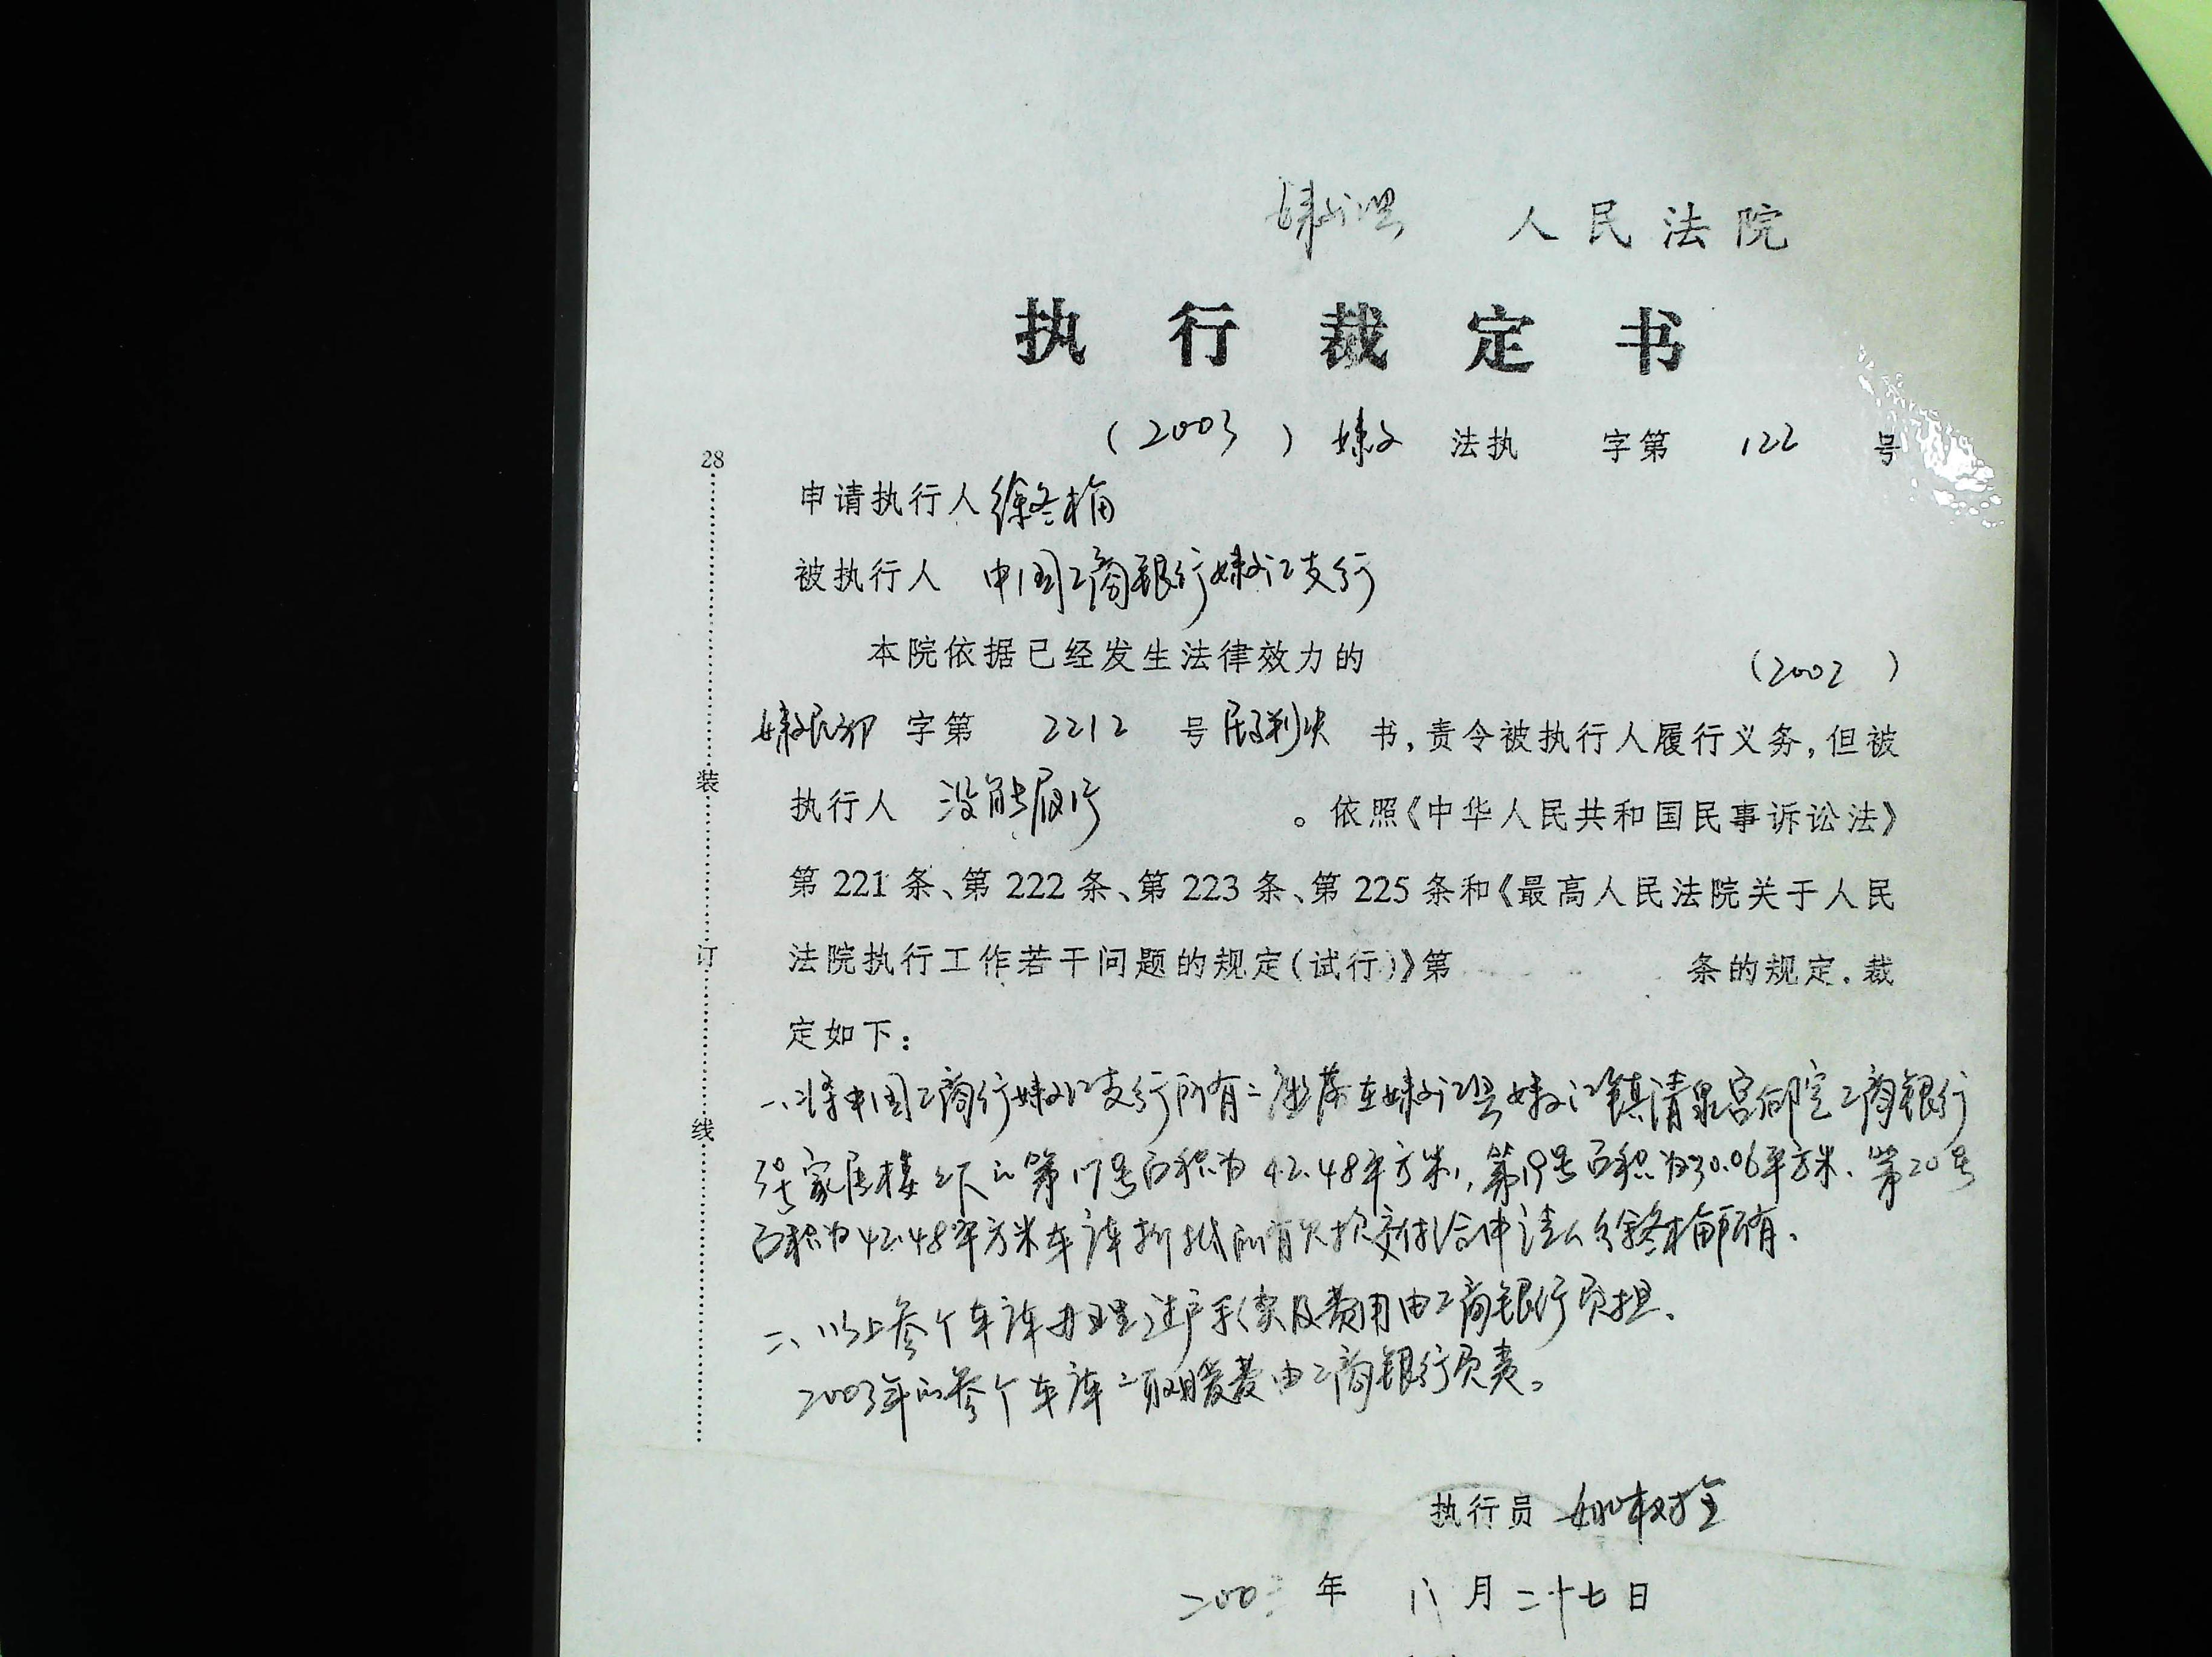 嫩江县 人民法院
执行裁定书
(2003) 嫩 法执 字第 122 号
28
申请执行人 徐冬梅
被执行人 中国工商银行嫩江支行
本院依据已经发生法律效力的 (2002)
嫩民初 字第 2212 号 民事判决 书,责令被执行人履行义务,但被
执行人 没能履行 。依照《中华人民共和国民事诉讼法》
第221条、第222条、第223条、第225条和《最高人民法院关于人民
法院执行工作若干问题的规定(试行)》第 条的规定,裁
定如下:
一、将中国工商行嫩江支行所有 座落在嫩江县嫩江镇清泉 工商银行
家属楼 下的第17号面积为42.48平方米,第19号面积为30.06平方米、第20号
面积为42.48平方米车库折抵所有欠款交付给申请人徐冬梅所有。
二、以上叁个车库办理过户手续及费用由工商银行负担、
2003年的叁个车库 取暖费由工商银行负责。
执行员 树全
200 年 八月二十七日
装
订
线